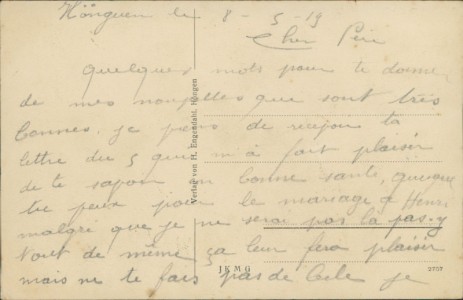 Hönguen le 8 - 5 - 19
Cher Père
Quelques mots pour te donner
de mes nouvelles qui sont très
bonnes. je viens de recevoir ta
lettre du 5 qui m'a fait plaisir
de te savoir en bonne santé, quoique
tu peux pour le mariage d Henri
malgré que je ne serai pas là pas. y
tout de même ça leur fera plaisir
mais ne te fais pas de bile je
Verlag von H. Engendahl, Höngen
JKMG
3757